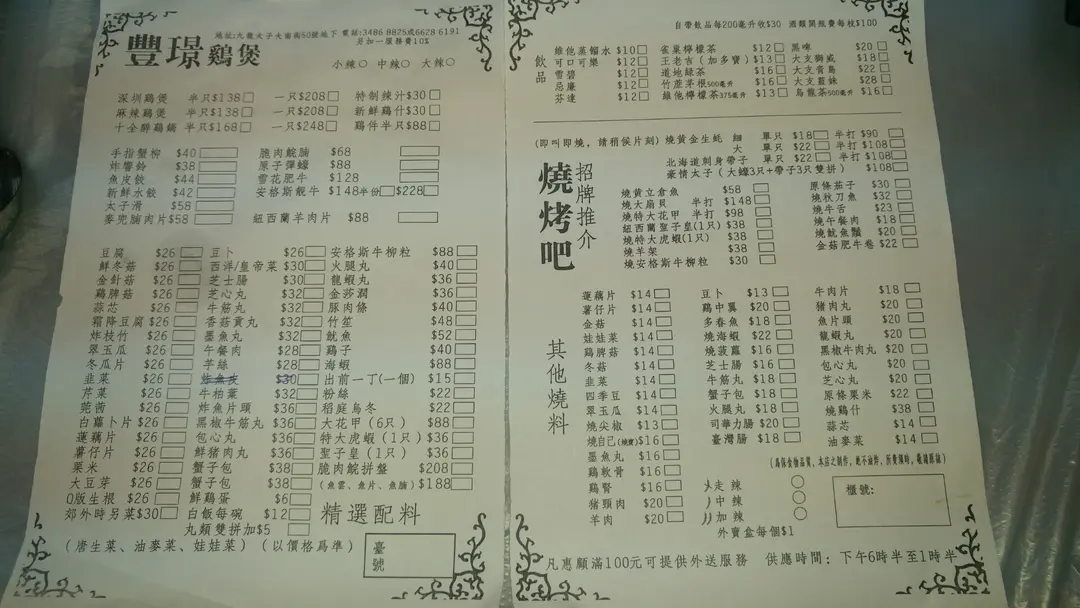 豐璟鷄煲
地址:九龍太子大南街50號地下 電話:3486 8825或6628 6191
另加一服務費10%
小辣○ 中辣○ 大辣○
深圳鷄煲 半只$138 一只$208 特制辣汁$30
麻辣鷄煲 半只$138 一只$208 新鮮鷄什$30
十全醉鷄鍋 半只$168 一只$248 鷄件半只$88
手指蟹柳 $40 脆肉鯇腩 $68
炸響鈴 $38 原子彈蠔 $88
魚皮餃 $44 雪花肥牛 $128
新鮮水餃 $42 安格斯靚牛 $148半份 $228
太子滑 $58
麥兜腩肉片$58 紐西蘭羊肉片 $88
豆腐 $26 豆卜 $26 安格斯牛柳粒 $88
鮮冬菇 $26 西洋/皇帝菜 $30 火腿丸 $40
金針菇 $26 芝士腸 $30 龍蝦丸 $36
鷄脾菇 $26 芝心丸 $32 金莎潤 $36
蒜芯 $26 牛筋丸 $32 豚肉條 $40
霜降豆腐 $26 香菇貢丸 $32 竹笙 $48
炸枝竹 $26 墨魚丸 $32 魷魚 $52
翠玉瓜 $26 午餐肉 $28 鷄子 $40
冬瓜片 $26 芋絲 $28 海蝦 $88
韭菜 $26 炸魚皮 $30 出前一丁(一個) $15
芹菜 $26 牛柏葉 $32 粉絲 $22
莞茜 $26 炸魚片頭 $36 稻庭烏冬 $22
白蘿卜片 $26 黑椒牛筋丸 $36 大花甲 (6只) $88
蓮藕片 $26 包心丸 $36 特大虎蝦 (1只) $36
薯仔片 $26 鮮猪肉丸 $36 聖子皇 (1只) $36
粟米 $26 蟹子包 $38 脆肉鯇拼盤 $208
大豆芽 $26 蟹子包 $38 (魚雲、魚片、魚腩) $188
Q版生根 $26 鮮鷄蛋 $6
郊外時另菜$30 白飯每碗 $12 精選配料
丸類雙拼加$5
(唐生菜、油麥菜、娃娃菜) (以價格爲準)
臺號
自帶飲品每200毫升收$30 酒類開瓶費每枝$100
飲品
維他蒸餾水 $10 雀巢檸檬茶 $12 黑啤 $20
可口可樂 $12 王老吉(加多寶) $13 大支獅威 $18
雪碧 $12 道地緑茶 $16 大支青島 $22
忌廉 $12 竹蔗茅根500毫升 $16 大支藍妹 $28
芬達 $12 維他檸檬茶375毫升 $13 烏龍茶500毫升 $16
(即叫即燒,請稍候片刻) 燒黃金生蚝 細 單只 $18 半打 $90
大 單只 $22 半打 $108
北海道刺身帶子 單只 $22 半打 $108
豪情太子(大蠔3只+帶子3只雙拼) $108
燒烤吧
招牌推介
燒黄立倉魚 $58 原條茄子 $30
燒大扇貝 半打 $148 燒秋刀魚 $32
燒特大花甲 半打 $98 燒牛舌 $23
紐西蘭聖子皇(1只) $38 燒午餐肉 $18
燒特大虎蝦(1只) $38 燒魷魚鬚 $20
燒羊架 $38 金菇肥牛卷 $22
燒安格斯牛柳粒 $30
其他燒料
蓮藕片 $14 豆卜 $13 牛肉片 $18
薯仔片 $14 鷄中翼 $20 猪肉丸 $20
金菇 $14 多春魚 $18 魚片頭 $20
娃娃菜 $14 燒海蝦 $22 龍蝦丸 $20
鷄脾菇 $14 燒菠蘿 $16 黑椒牛肉丸 $20
冬菇 $14 芝士腸 $16 包心丸 $20
韭菜 $14 牛筋丸 $18 芝心丸 $20
四季豆 $14 蟹子包 $18 原條粟米 $22
翠玉瓜 $14 火腿丸 $18 燒鷄什 $38
燒尖椒 $13 司華力腸 $20 蒜芯 $14
燒自己(燒費)$16 臺灣腸 $18 油麥菜 $14
墨魚丸 $16
鷄軟骨 $16
鷄腎 $16
猪頸肉 $20
羊肉 $20
走辣 ○
中辣 ○
加辣 ○
外賣盒每個$1
櫃號:
凡惠顧滿100元可提供外送服務 供應時間: 下午6時半至1時半